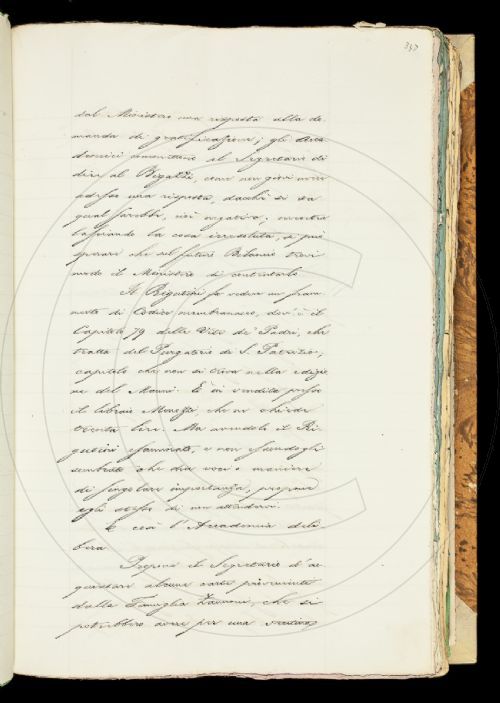 dal Ministero una risposta alla do-
manda di gratificazione; gli Acca-
demici commettono al Segretario di
dire al Bigazzi, come non giovi
adesso una risposta, dacchè si sa
qual sarebbe, cioè negativa; mentre
lasciando la cosa irresoluta, si può
sperare che nel futuro Bilancio trovi
modo il Ministero di contentarlo.
Il Rigutini fa vedere un fram-
mento di Codice membranaceo, dov'è il
Capitolo 79 delle Vite de' Padri, che
tratta del Purgatorio di S. Patrizio,
capitolo che non si trova nella edizio-
ne del Manni. È in vendita presso
il libraio che ne chiede
trenta lire. Ma avendolo il Ri-
gutini esaminato, e non essendogli
sembrato che dia voci o maniere
di singolare importanza, propone
egli stesso di non attendervi.
E così l'Accademia deli-
bera.
Propone il Segretario d'ac-
quistare alcune carte provenienti
dalla Famiglia Zannoni, che si
potrebbero avere per una